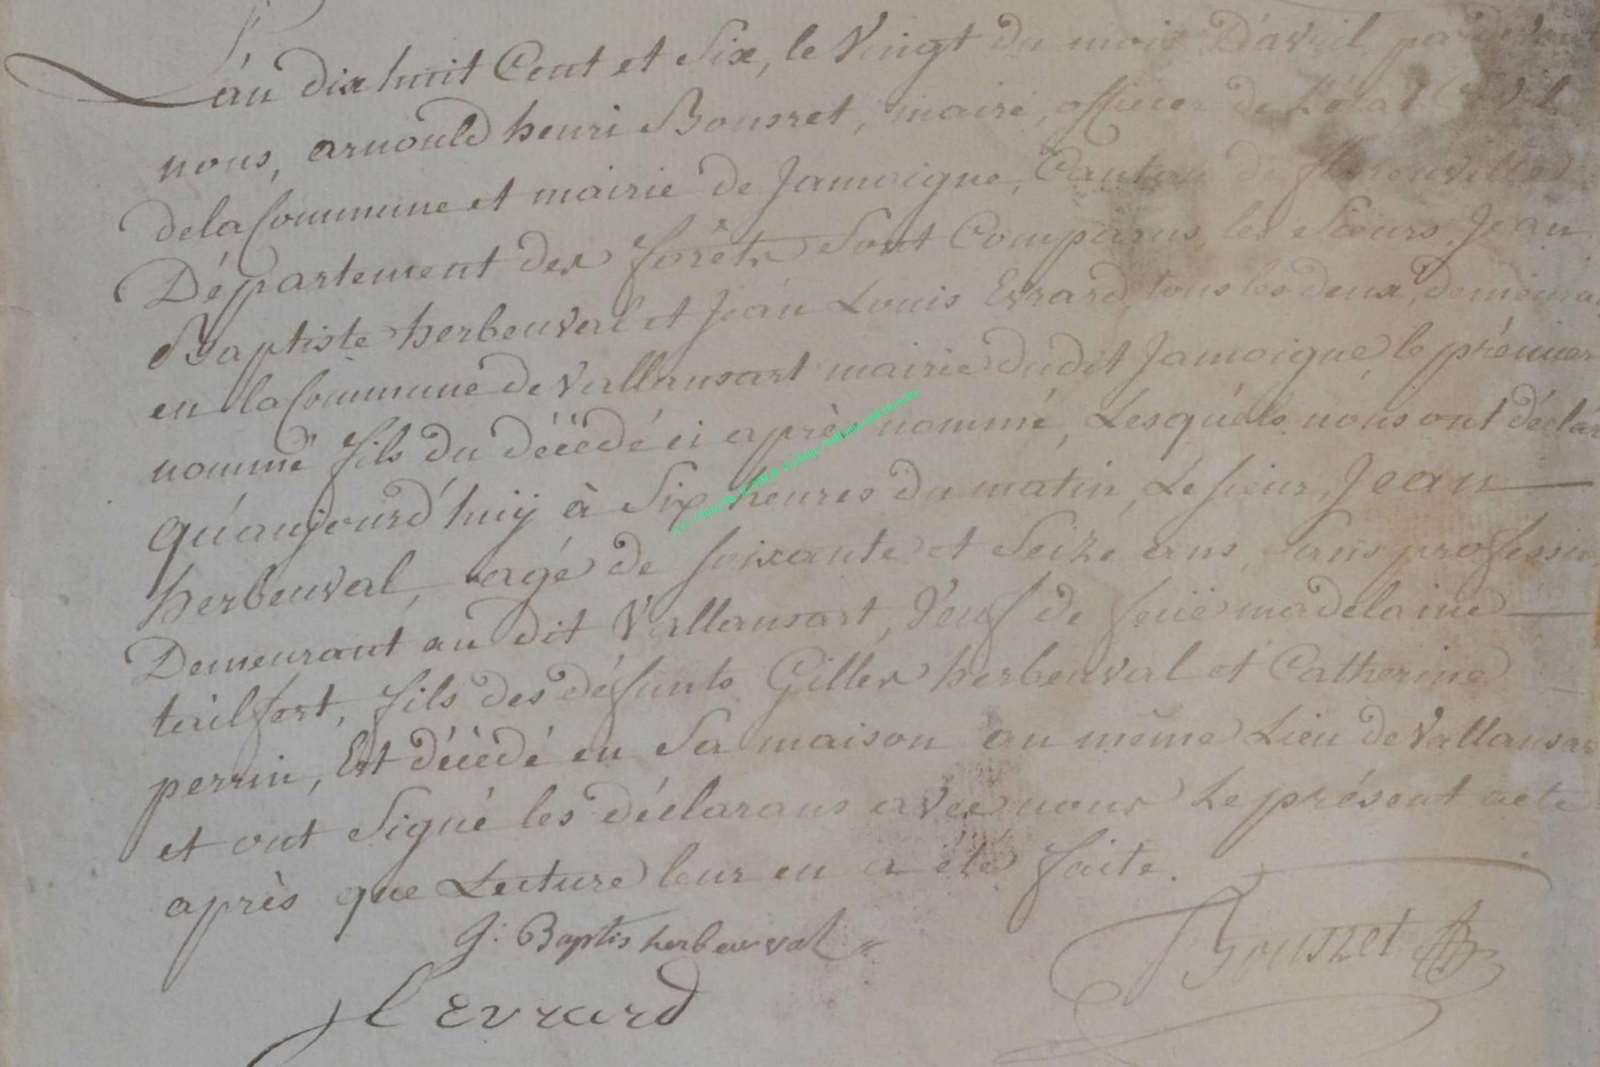 L'an dix huit Cent et Six, le Vingt du mois D'avril pardevant
nous, arnould henri Bousret, maire, officier de L'état Civil
de la Commune et mairie de Jamoigne, Canton de florenville
Département des forêts Sont Comparus les Sieurs Jean
Baptiste herbeuval et Jean Louis Evrard, tous les deux demeura
en la Commune de Vallansart mairie dudit Jamoigne, le prémier
nommé fils du décédé ci après nommé, Lesquéls nous ont déclar
qu'aujourd'huÿ à Six heures du matin, Le sieur, Jean
herbeuval, agé de soixante et Seize ans, Sans professio
Demeurant au dit Vallansart, Veuf de feuë madelaine
tailfert, fils des défunts Gilles herbeuval et Catherine
perrin, Est décédé en Sa maison au même Lieu de Vallansar
et ont Signé les déclarans avec nous Le présent acte
après que Lecture leur en a été faite.
J: Baptis herbeuval
JL EVrard
Bousret